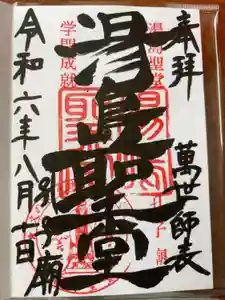 奉拝
萬世師表
湯島聖堂
湯島聖堂
学問成就
孔子廟
令和六年八月十日